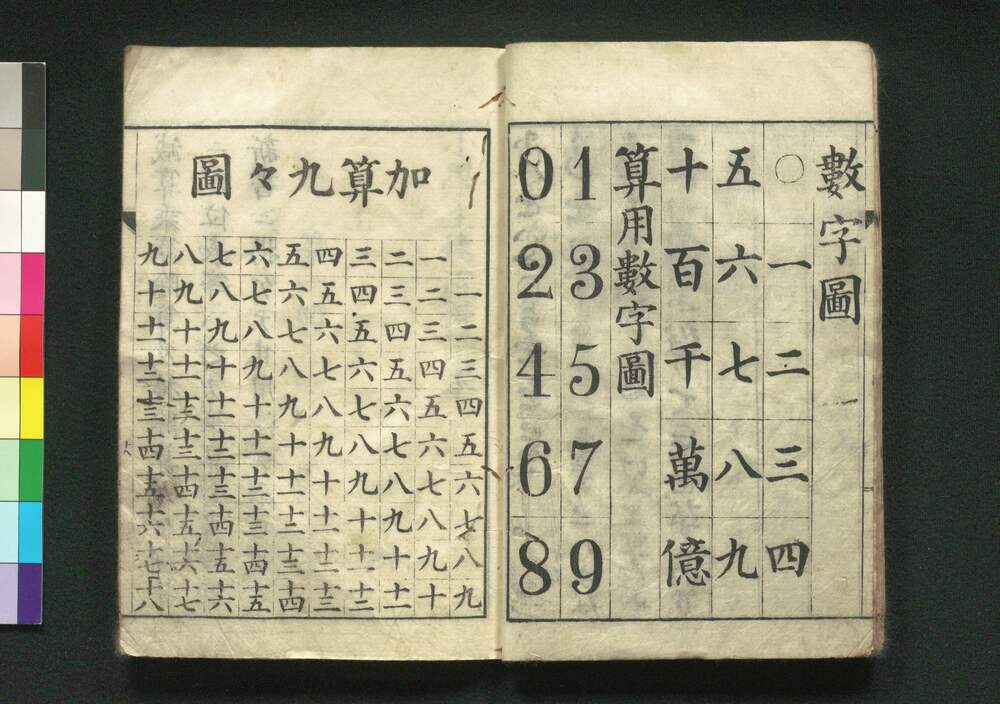 數字圖
〇一二三四
五六七八九
十百千萬億
算用數字圖
1 3 5 7 9
0 2 4 6 8
加算九々圖
一 二 三 四 五 六 七 八 九
一 二 三 四 五 六 七 八 九 十
二 三 四 五 六 七 八 九 十 十一
三 四 五 六 七 八 九 十 十一 十二
四 五 六 七 八 九 十 十一 十二 十三
五 六 七 八 九 十 十一 十二 十三 十四
六 七 八 九 十 十一 十二 十三 十四 十五
七 八 九 十 十一 十二 十三 十四 十五 十六
八 九 十 十一 十二 十三 十四 十五 十六 十七
九 十 十一 十二 十三 十四 十五 十六 十七 十八